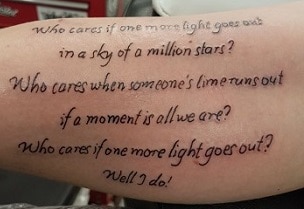 Who cares if one more light goes out
in a sky of a million stars?
Who cares when someone's time runs out
if a moment is all we are?
Who cares if one more light goes out?
Well I do!